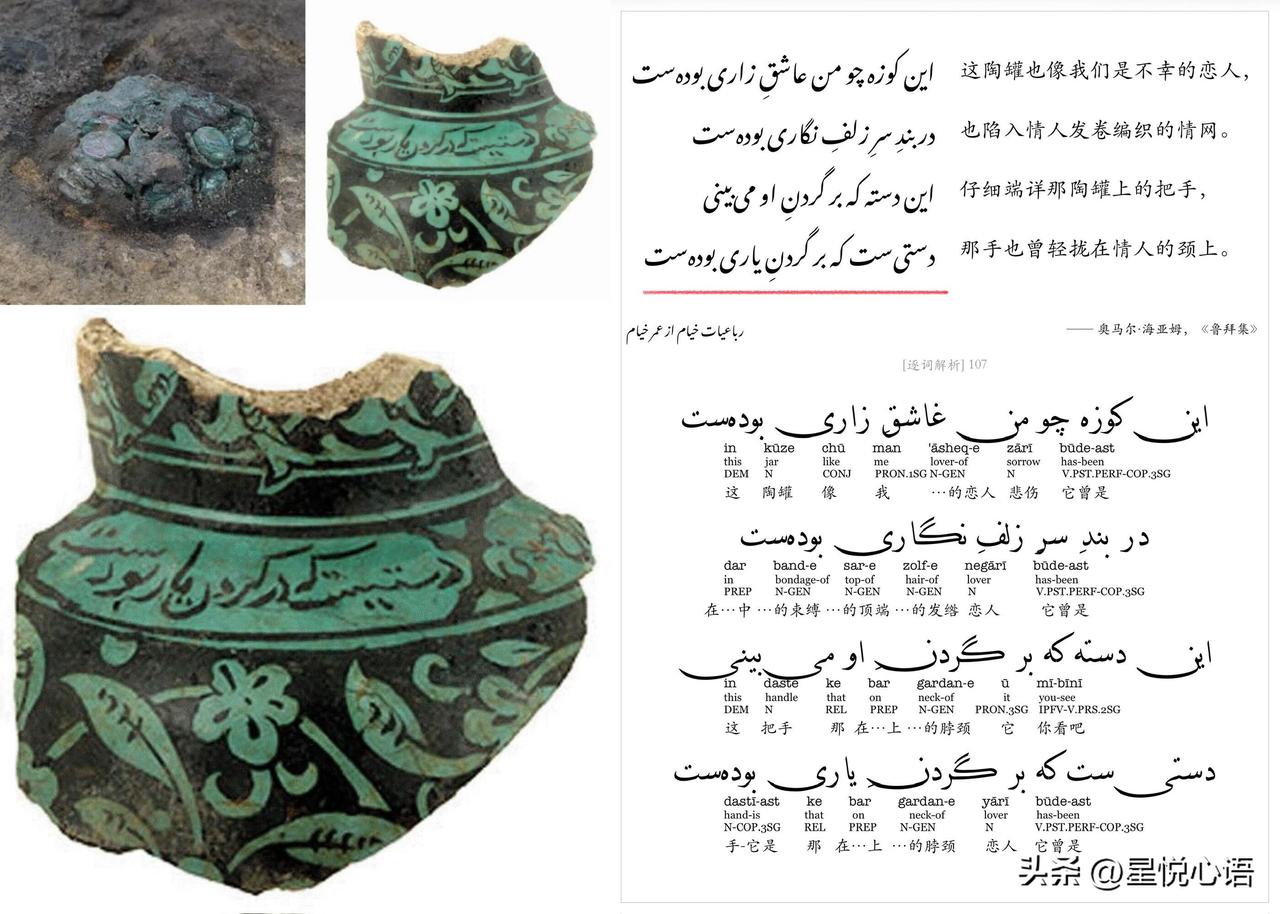 دستیست که در گردن یاری بودست
این کوزه چو من عاشقِ زاری بوده‌ست 这陶罐也像我们是不幸的恋人，
در بندِ سرِ زلفِ نگاری بوده‌ست 也陷入情人发卷编织的情网。
این دسته که بر گردنِ او می‌بینی 仔细端详那陶罐上的把手，
دستی‌ست که بر گردنِ یاری بوده‌ست 那手也曾轻拢在情人的颈上。
رباعیات خیام از عمر خیام —— 奥马尔·海亚姆，《鲁拜集》
[逐词解析] 107
این کوزه چو من عاشقِ زاری بوده‌ست
in kūze chū man 'āsheq-e zārī būde-ast
this jar like me lover-of sorrow has-been
DEM N CONJ PRON.1SG N-GEN N V.PST.PERF-COP.3SG
这 陶罐 像 我 …的恋人 悲伤 它曾是
در بندِ سرِ زلفِ نگاری بوده‌ست
dar band-e sar-e zolf-e negārī būde-ast
in bondage-of top-of hair-of lover has-been
PREP N-GEN N-GEN N-GEN N V.PST.PERF-COP.3SG
在…中 …的束缚 …的顶端 …的发绺 恋人 它曾是
این دسته که بر گردنِ او می‌بینی
in daste ke bar gardan-e ū mī-bīnī
this handle that on neck-of it you-see
DEM N REL PREP N-GEN PRON.3SG IPFV-V.PRS.2SG
这 把手 那 在…上 …的脖颈 它 你看吧
دستی‌ست که بر گردنِ یاری بوده‌ست
dastī-ast ke bar gardan-e yārī būde-ast
hand-is that on neck-of lover has-been
N-COP.3SG REL PREP N-GEN N V.PST.PERF-COP.3SG
手-它是 那 在…上 …的脖颈 恋人 它曾是
头条 @星悦心语